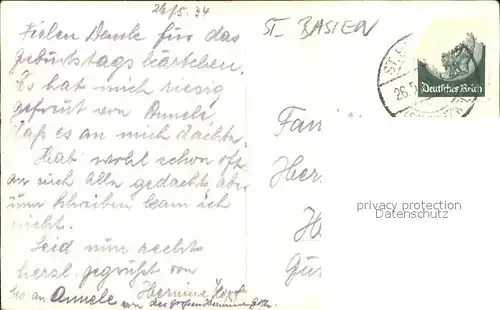 26/5. 34
ST. BASIEN
Vielen Dank für das
Geburtstagskärtchen.
Es hat mich riesig
gefreut von Annele,
daß es an mich dachte.
Hab wohl schon oft
an euch alle gedacht, aber
zum Schreiben kam ich
nicht.
Seid nun recht
herzl. gegrüßt von
Hermine
bes an Annele von der großen Hermine
ST.
26.5
Deutsches Reich
Fam
Her
H
privacy protection
Datenschutz